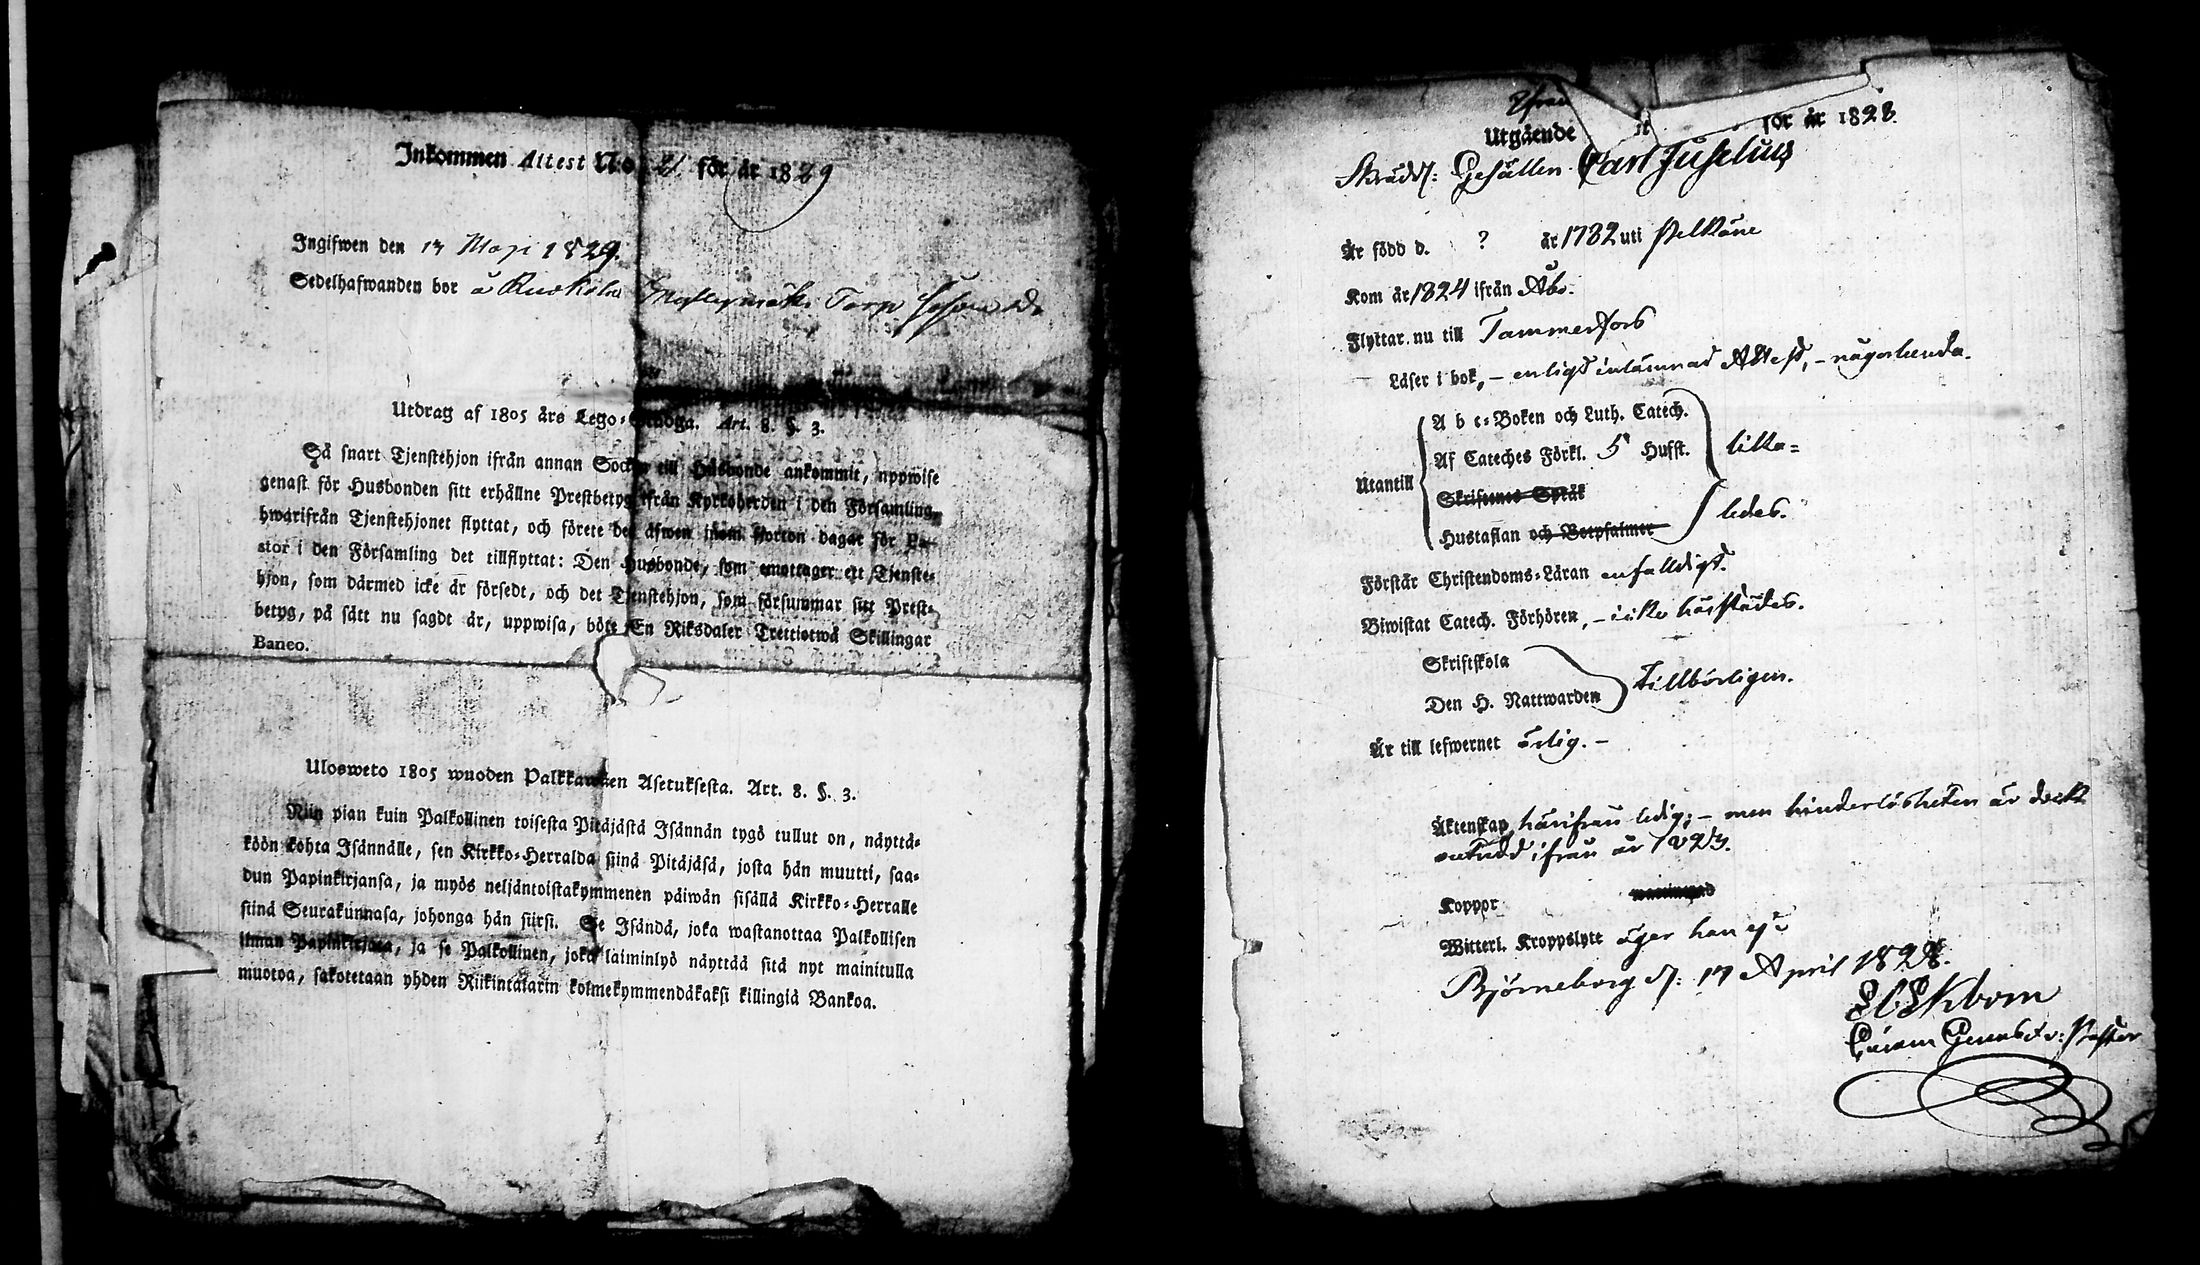 Inkommen Attest No 21. för år 1829
Ingifwen den 13 Maji 1829.
Sedelhafwanden bor å Ruokola Torp
Utdrag af 1805 års Lego-Stadga. Art. 8. §. 3.
Så snart Tjenstehjon ifrån annan Socken till Husbonde ankommit, uppwise
genast för Husbonden sitt erhållne Prestbetyg ifrån Kyrkoherden i den Församling,
hwarifrån Tjenstehjonet flyttat, och förete det äfwen inom fjorton dagar för Pa-
stor i den Församling det tillflyttat: Den Husbonde, som emottager ett Tjenste-
hjon, som därmed icke är försedt, och det Tjenstehjon, som försummar sitt Prest-
betyg, på sätt nu sagdt är, uppwisa, böte En Riksdaler Trettiotwå Skillingar
Banco.
Ulosweto 1805 wuoden Palkkawäen Asetuksesta. Art. 8. §. 3.
Niin pian kuin Palkollinen toisesta Pitäjästä Isännän tygö tullut on, näyttä-
köön kohta Isännälle, sen Kirkko-Herralda siinä Pitäjäsä, josta hän muutti, saa-
dun Papinkirjansa, ja myös neljäntoistakymmenen päiwän sisällä Kirkko-Herralle
siinä Seurakunnasa, johonga hän siirsi. Se Isändä, joka wastanottaa Palkollisen
ilman Papinkirjata, ja se Palkollinen, joka laiminlyö näyttää sitä nyt mainitulla
muotoa, sakotetaan yhden Riikintalarin kolmekymmendäkaksi killingiä Bankoa.
Utgående för år 1828.
Skrädd: Gesällen Carl Juselius
Är född d. ? år 1782 uti Pelkäne
Kom år 1824 ifrån Åbo.
Flyttar nu till Tammerfors
Läser i bok, – enligt inlämnad Attest, – någorlunda.
Utantill
A b c-Boken och Luth. Catech.
Af Cateches Förkl. 5 Hufst.
Skriftenes Språk
Hustaflan och Botpsalmer
lika-
ledes.
Förstår Christendoms-Läran enfalldigt.
Biwistat Catech. Förhören, – icke härstädes.
Skriftskola
Den H. Nattwarden
tillbörligen.
Är till lefwernet ärlig. –
Äktenskap härifrån ledig; – men hinderlösheten är dock
ifrån år 1823.
Koppor
Witterl. Kroppslytt äger han ej.
Björneborg d: 17 April 1828.
Ekbom
v: Pastor